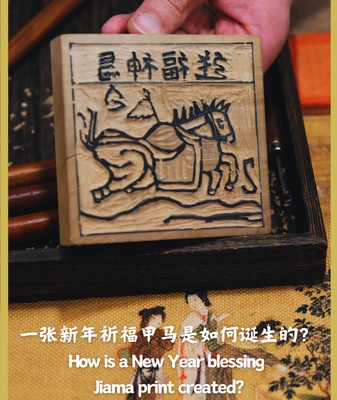 一张新年祈福甲马是如何诞生的?
How is a New Year blessing
Jiama print created?